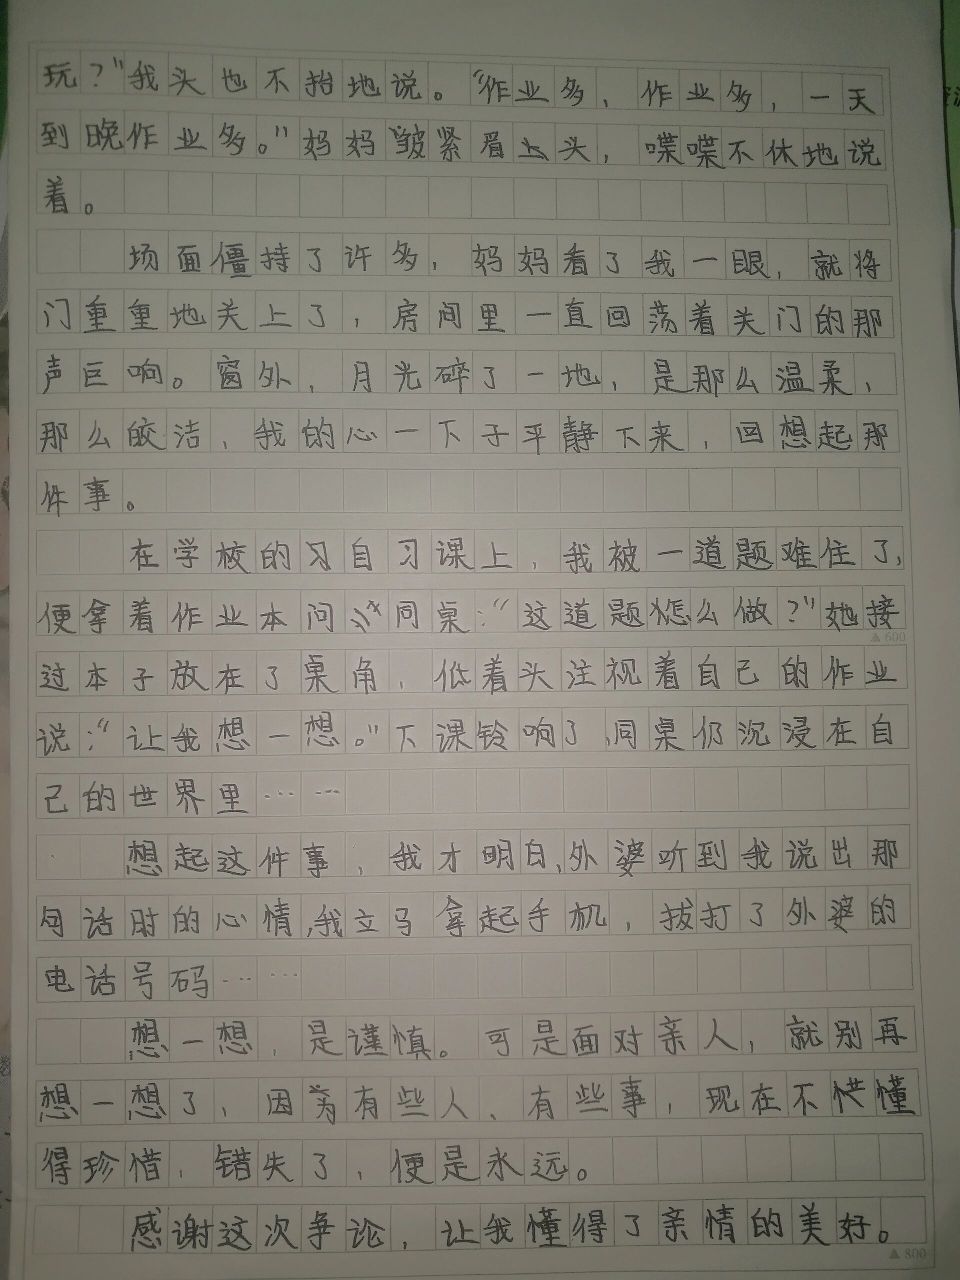 玩？”我头也不抬地说。“作业多，作业多，一天
到晚作业多。”妈妈皱紧眉头，喋喋不休地说
着。
场面僵持了许多，妈妈看了我一眼，就将
门重重地关上了，房间里一直回荡着关门的那
声巨响。窗外，月光碎了一地，是那么温柔，
那么皎洁，我的心一下子平静下来，回想起那
件事。
在学校的习自习课上，我被一道题难住了，
便拿着作业本问同桌：“这道题怎么做？”她接
▲600
过本子放在了桌角，低着头注视着自己的作业
说：“让我想一想。”下课铃响了，同桌仍沉浸在自
己的世界里……
想起这件事，我才明白，外婆听到我说出那
句话时的心情，我立马拿起手机，拔打了外婆的
电话号码……
想一想，是谨慎。可是面对亲人，就别再
想一想了，因为有些人、有些事，现在不懂
得珍惜，错失了，便是永远。
感谢这次争论，让我懂得了亲情的美好。
▲800